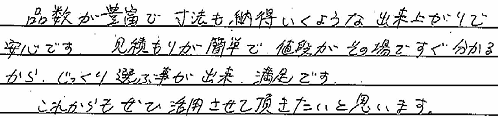 品数が豊富で寸法も納得いくような出来上がりで
安心です。見積もりが簡単で値段がその場ですぐ分かる
から、じっくり選ぶ事が出来、満足です。
これからもぜひ活用させて頂きたいと思います。